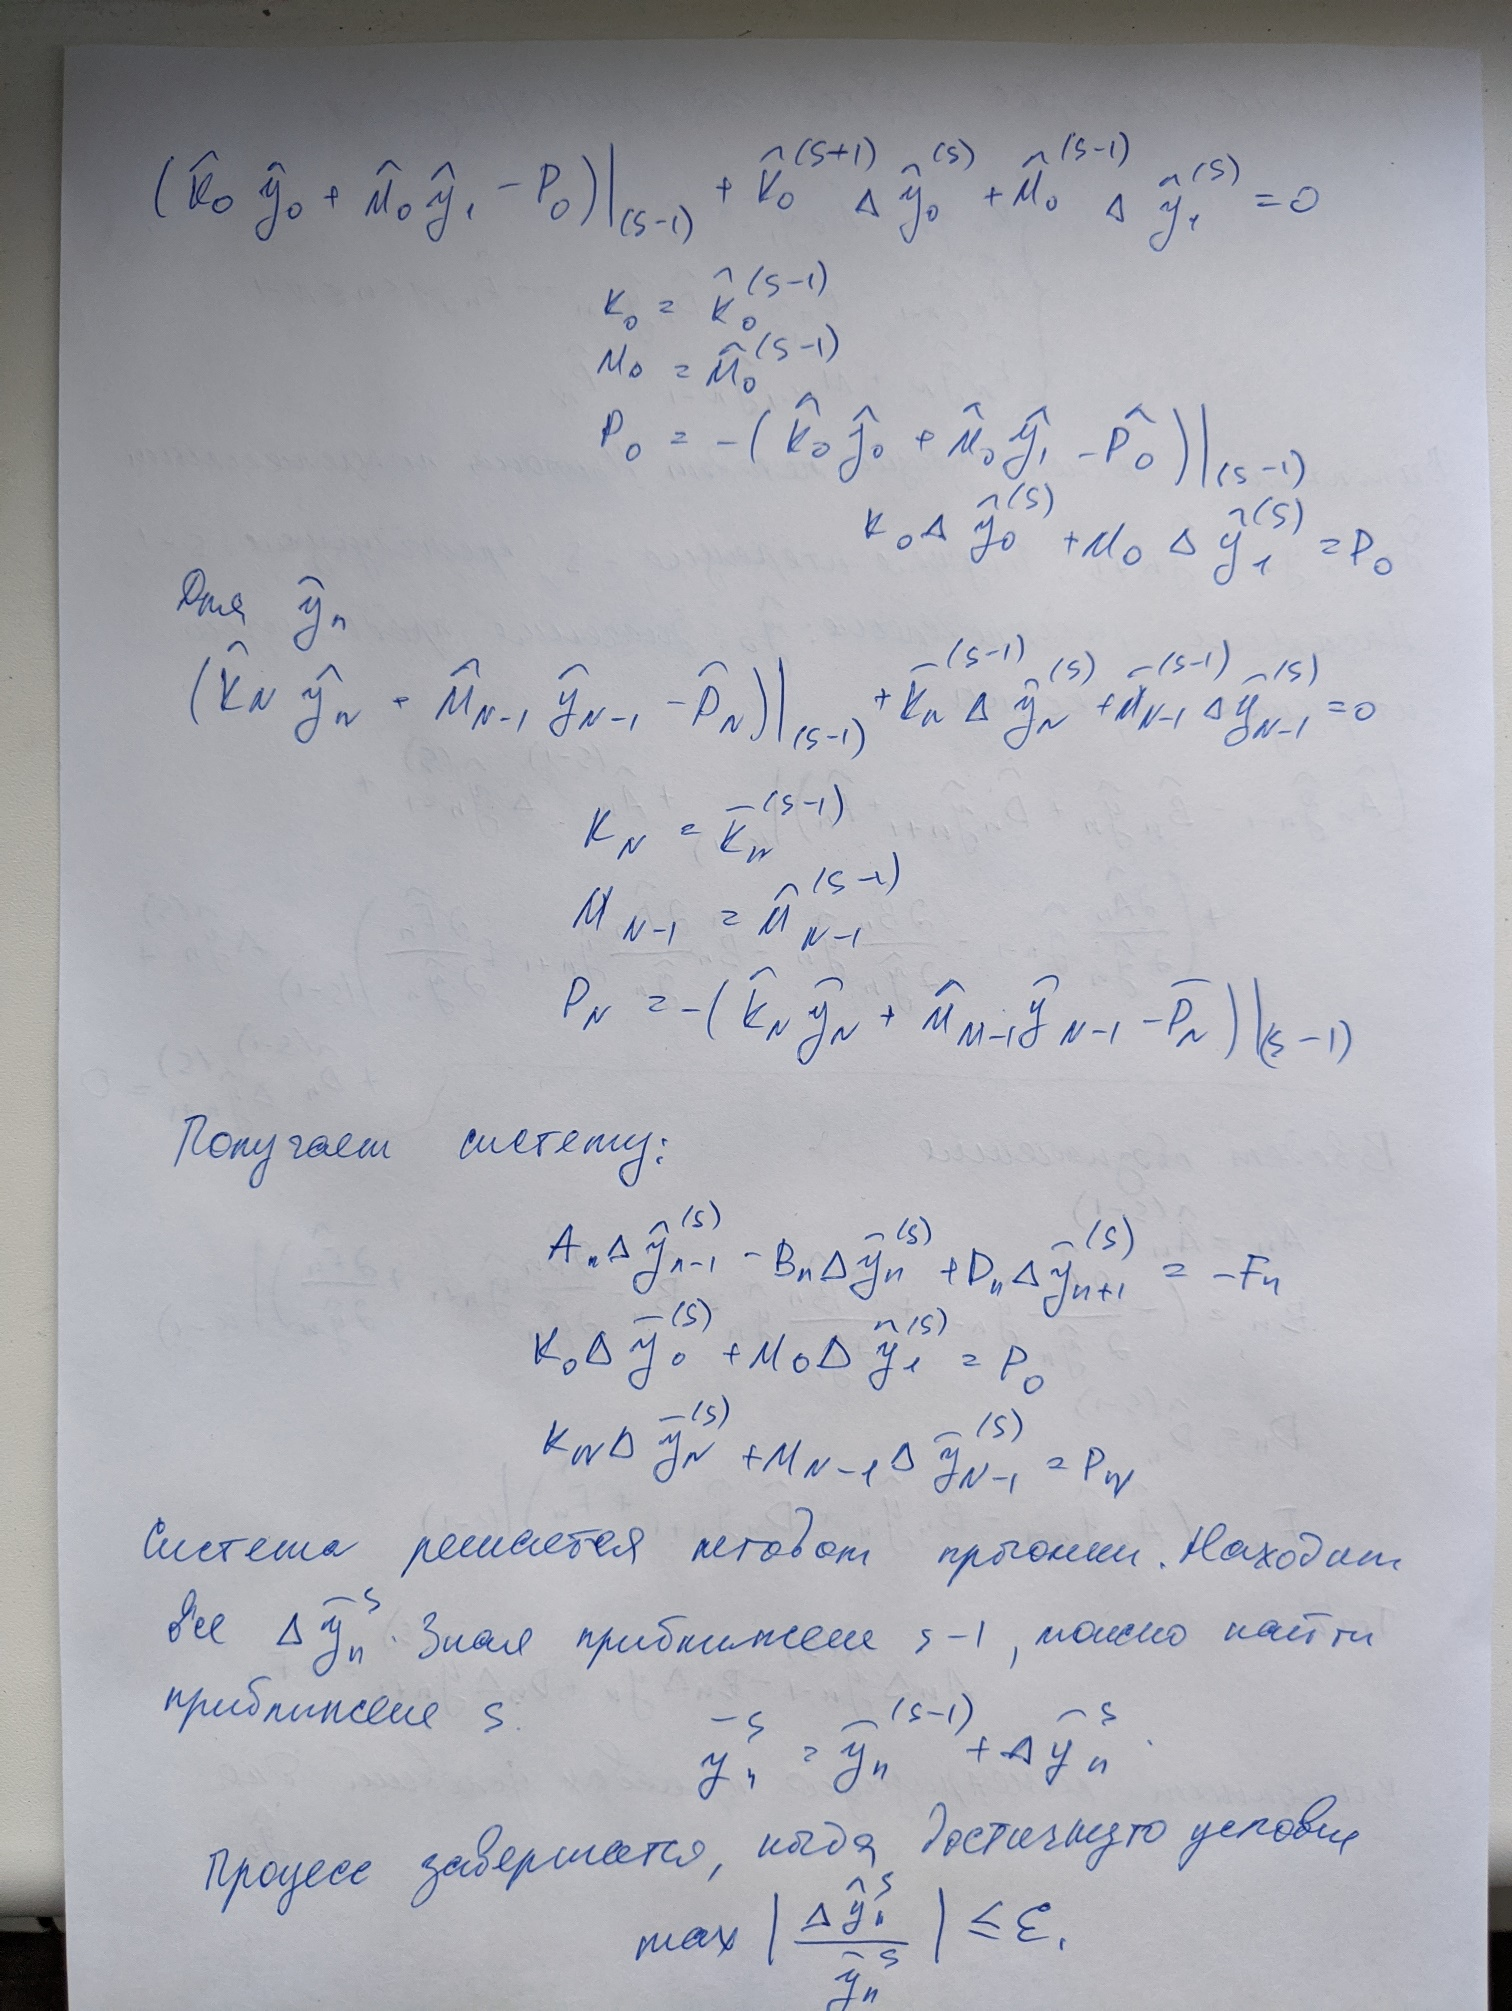 (K̂₀ ŷ₀ + M̂₀ ŷ₁ - P₀)|₍ₛ₋₁₎ + K̂₀^(s+1) Δŷ₀^(s) + M̂₀^(s-1) Δŷ₁^(s) = 0
K₀ = K̂₀^(s-1)
M₀ = M̂₀^(s-1)
P₀ = -(K̂₀ ŷ₀ + M̂₀ ŷ₁ - P̂₀)|₍ₛ₋₁₎
K₀ Δŷ₀^(s) + M₀ Δŷ₁^(s) = P₀
Для ŷₙ
(K̂_N ŷ_N + M̂_{N-1} ŷ_{N-1} - P̂_N)|₍ₛ₋₁₎ + K̂_N^(s-1) Δŷ_N^(s) + M̂_{N-1}^(s-1) Δŷ_{N-1}^(s) = 0
K_N = K̂_N^(s-1)
M_{N-1} = M̂_{N-1}^(s-1)
P_N = -(K̂_N ŷ_N + M̂_{M-1} ŷ_{N-1} - P̂_N)|₍ₛ₋₁₎
Получаем систему:
Aₙ Δŷ_{n-1}^(s) - Bₙ Δŷₙ^(s) + Dₙ Δŷ_{n+1}^(s) = -Fₙ
K₀ Δŷ₀^(s) + M₀ Δŷ₁^(s) = P₀
K_N Δŷ_N^(s) + M_{N-1} Δŷ_{N-1}^(s) = P_N
Система решается методом прогонки. Находим
все Δŷₙ^s. Зная приближение s-1, можно найти
приближение s.
ŷₙ^s = ŷₙ^(s-1) + Δŷₙ^s.
Процесс завершается, когда достигнуто условие
max |Δŷₙ^s / ŷₙ^s| ≤ ε.